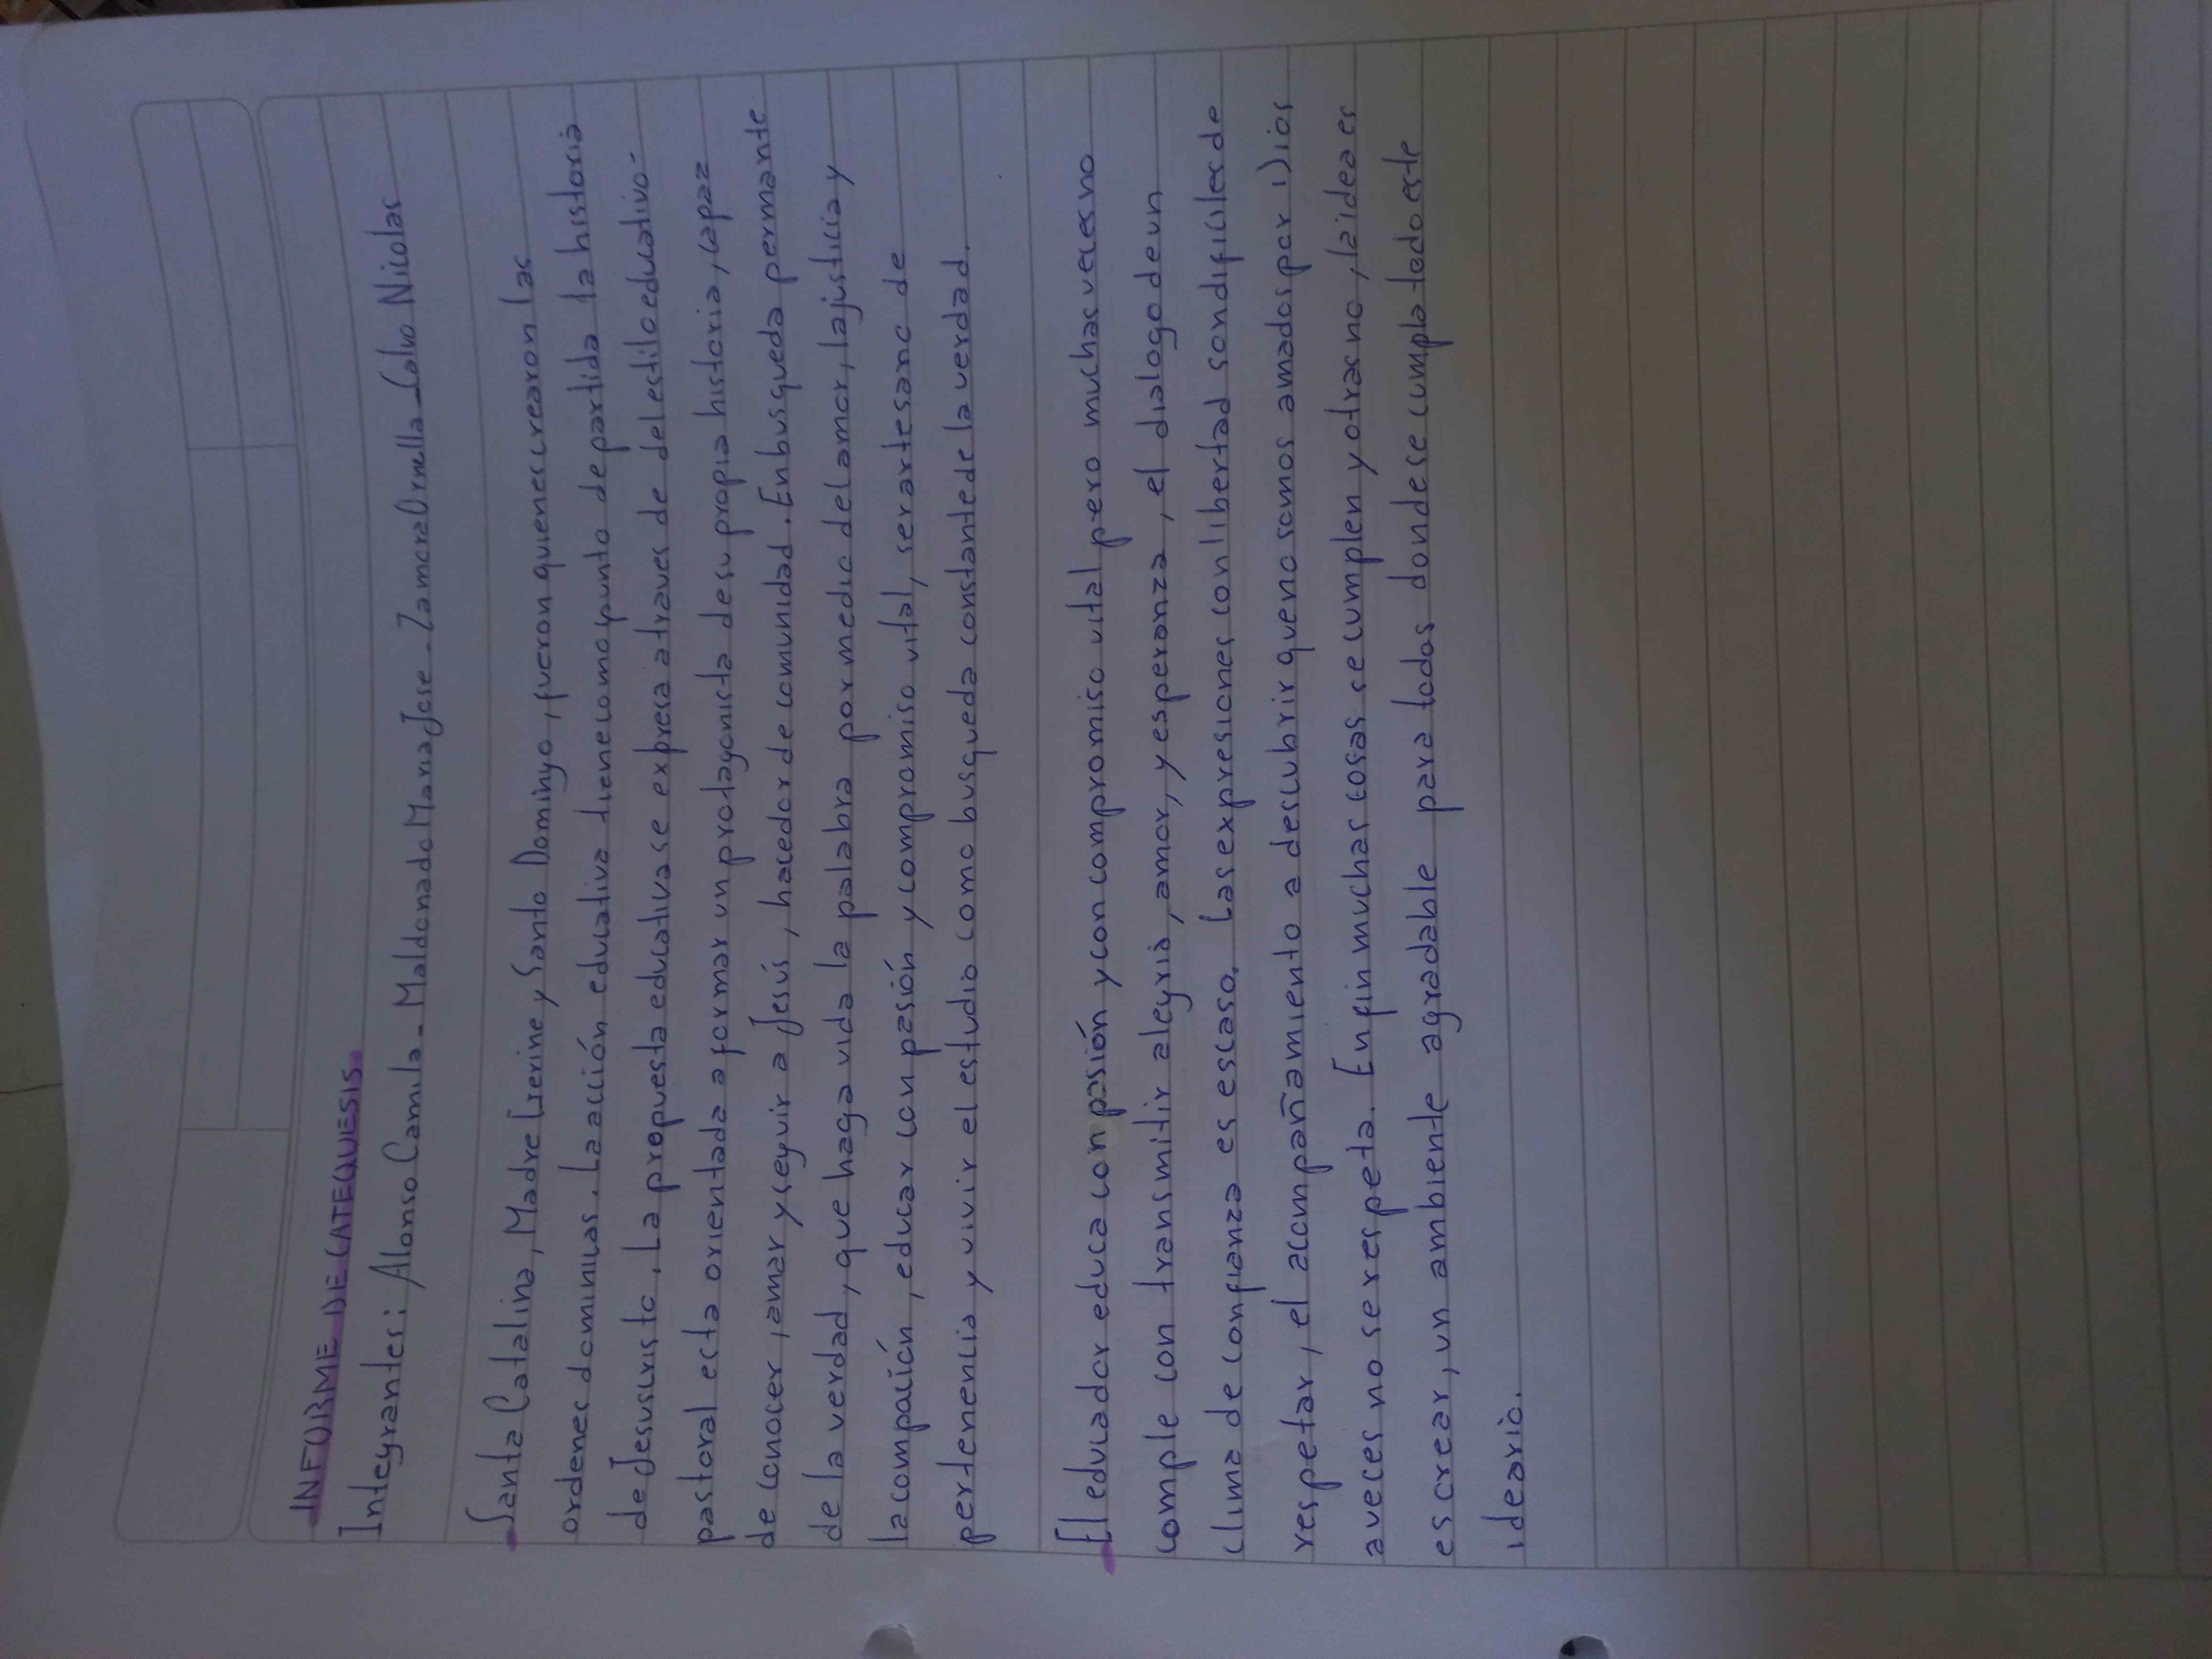 INFORME DE CATEQUESIS.
Integrantes: Alonso Camila - Maldonado Maria Jose - Zamora Ornella - Calvo Nicolas
Santa Catalina, Madre Gerine y Santo Domingo, fueron quienes crearon las
ordenes dominicas. La acción educativa tiene como punto de partida la historia
de Jesuscristo. La propuesta educativa se expresa atraves de del estilo educativo-
pastoral esta orientada a formar un protagonista de su propia historia, capaz
de conocer, amar y seguir a Jesús, hacedor de comunidad. En busqueda permante
de la verdad, que haga vida la palabra por medio del amor, la justicia y
la compación, educar con pasión y compromiso vital, ser artesano de
pertenencia y vivir el estudio como busqueda constante de la verdad.
El educador educa con pasión y con compromiso vital pero muchas veces no
comple con transmitir alegria, amor, y esperanza, el dialogo de un
clima de confianza es escaso. Las expresiones con libertad son dificiles de
respetar, el acompañamiento a descubrir que no somos amados por Dios
aveces no se respeta. En fin muchas cosas se cumplen y otras no, la idea es
es crear, un ambiente agradable para todos donde se cumpla todo este
ideario.